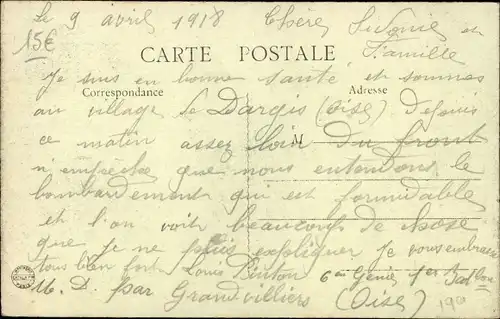 Le 9 avril 1918 Chère Sidonie et
15€ Famille
CARTE POSTALE
Je suis en bonne santé et sommes
Correspondance Adresse
au village de Dargis (Oise) depuis
ce matin assez loin du front
M
n'empeche que nous entendons le
bombardement qui est formidable
et l'on voit beaucoup de chose
que je ne puis expliquer je vous embrasse
tous bien fort Louis 6me Génie 1er
M. D. par Grandvilliers (Oise) 190